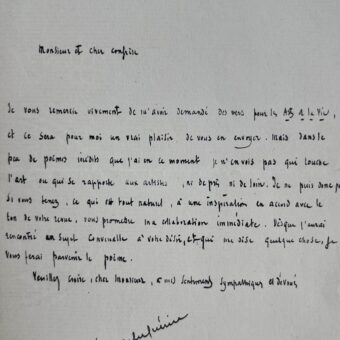 Monsieur et cher confrère
Je vous remercie vivement de m'avoir demandé des vers pour les Arts de la Vie,
et ce sera pour moi un vrai plaisir de vous en envoyer. Mais dans le
peu de poèmes inédits que j'ai en ce moment je n'en vois pas qui touche
l'art ou qui se rapporte aux artistes, ni de près ni de loin. Je ne puis donc pas
si vous tenez, ce qui est tout naturel, à une inspiration en accord avec le
ton de votre revue, vous promettre ma collaboration immédiate. Dès que j'aurai
rencontré un sujet convenable à votre désir, et qui me dise quelque chose, je
vous ferai parvenir le poème.
Veuillez croire, cher Monsieur, à mes sentiments sympathiques et dévoués